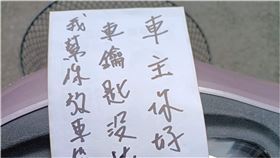 車主你好
車鑰匙沒
我幫你放車